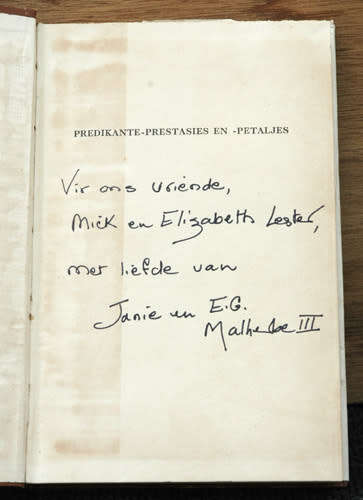 PREDIKANTE-PRESTASIES EN -PETALJES
Vir ons vriende,
Mick en Elizabeth Lester,
met liefde van
Janie en E.G.
Malherbe III